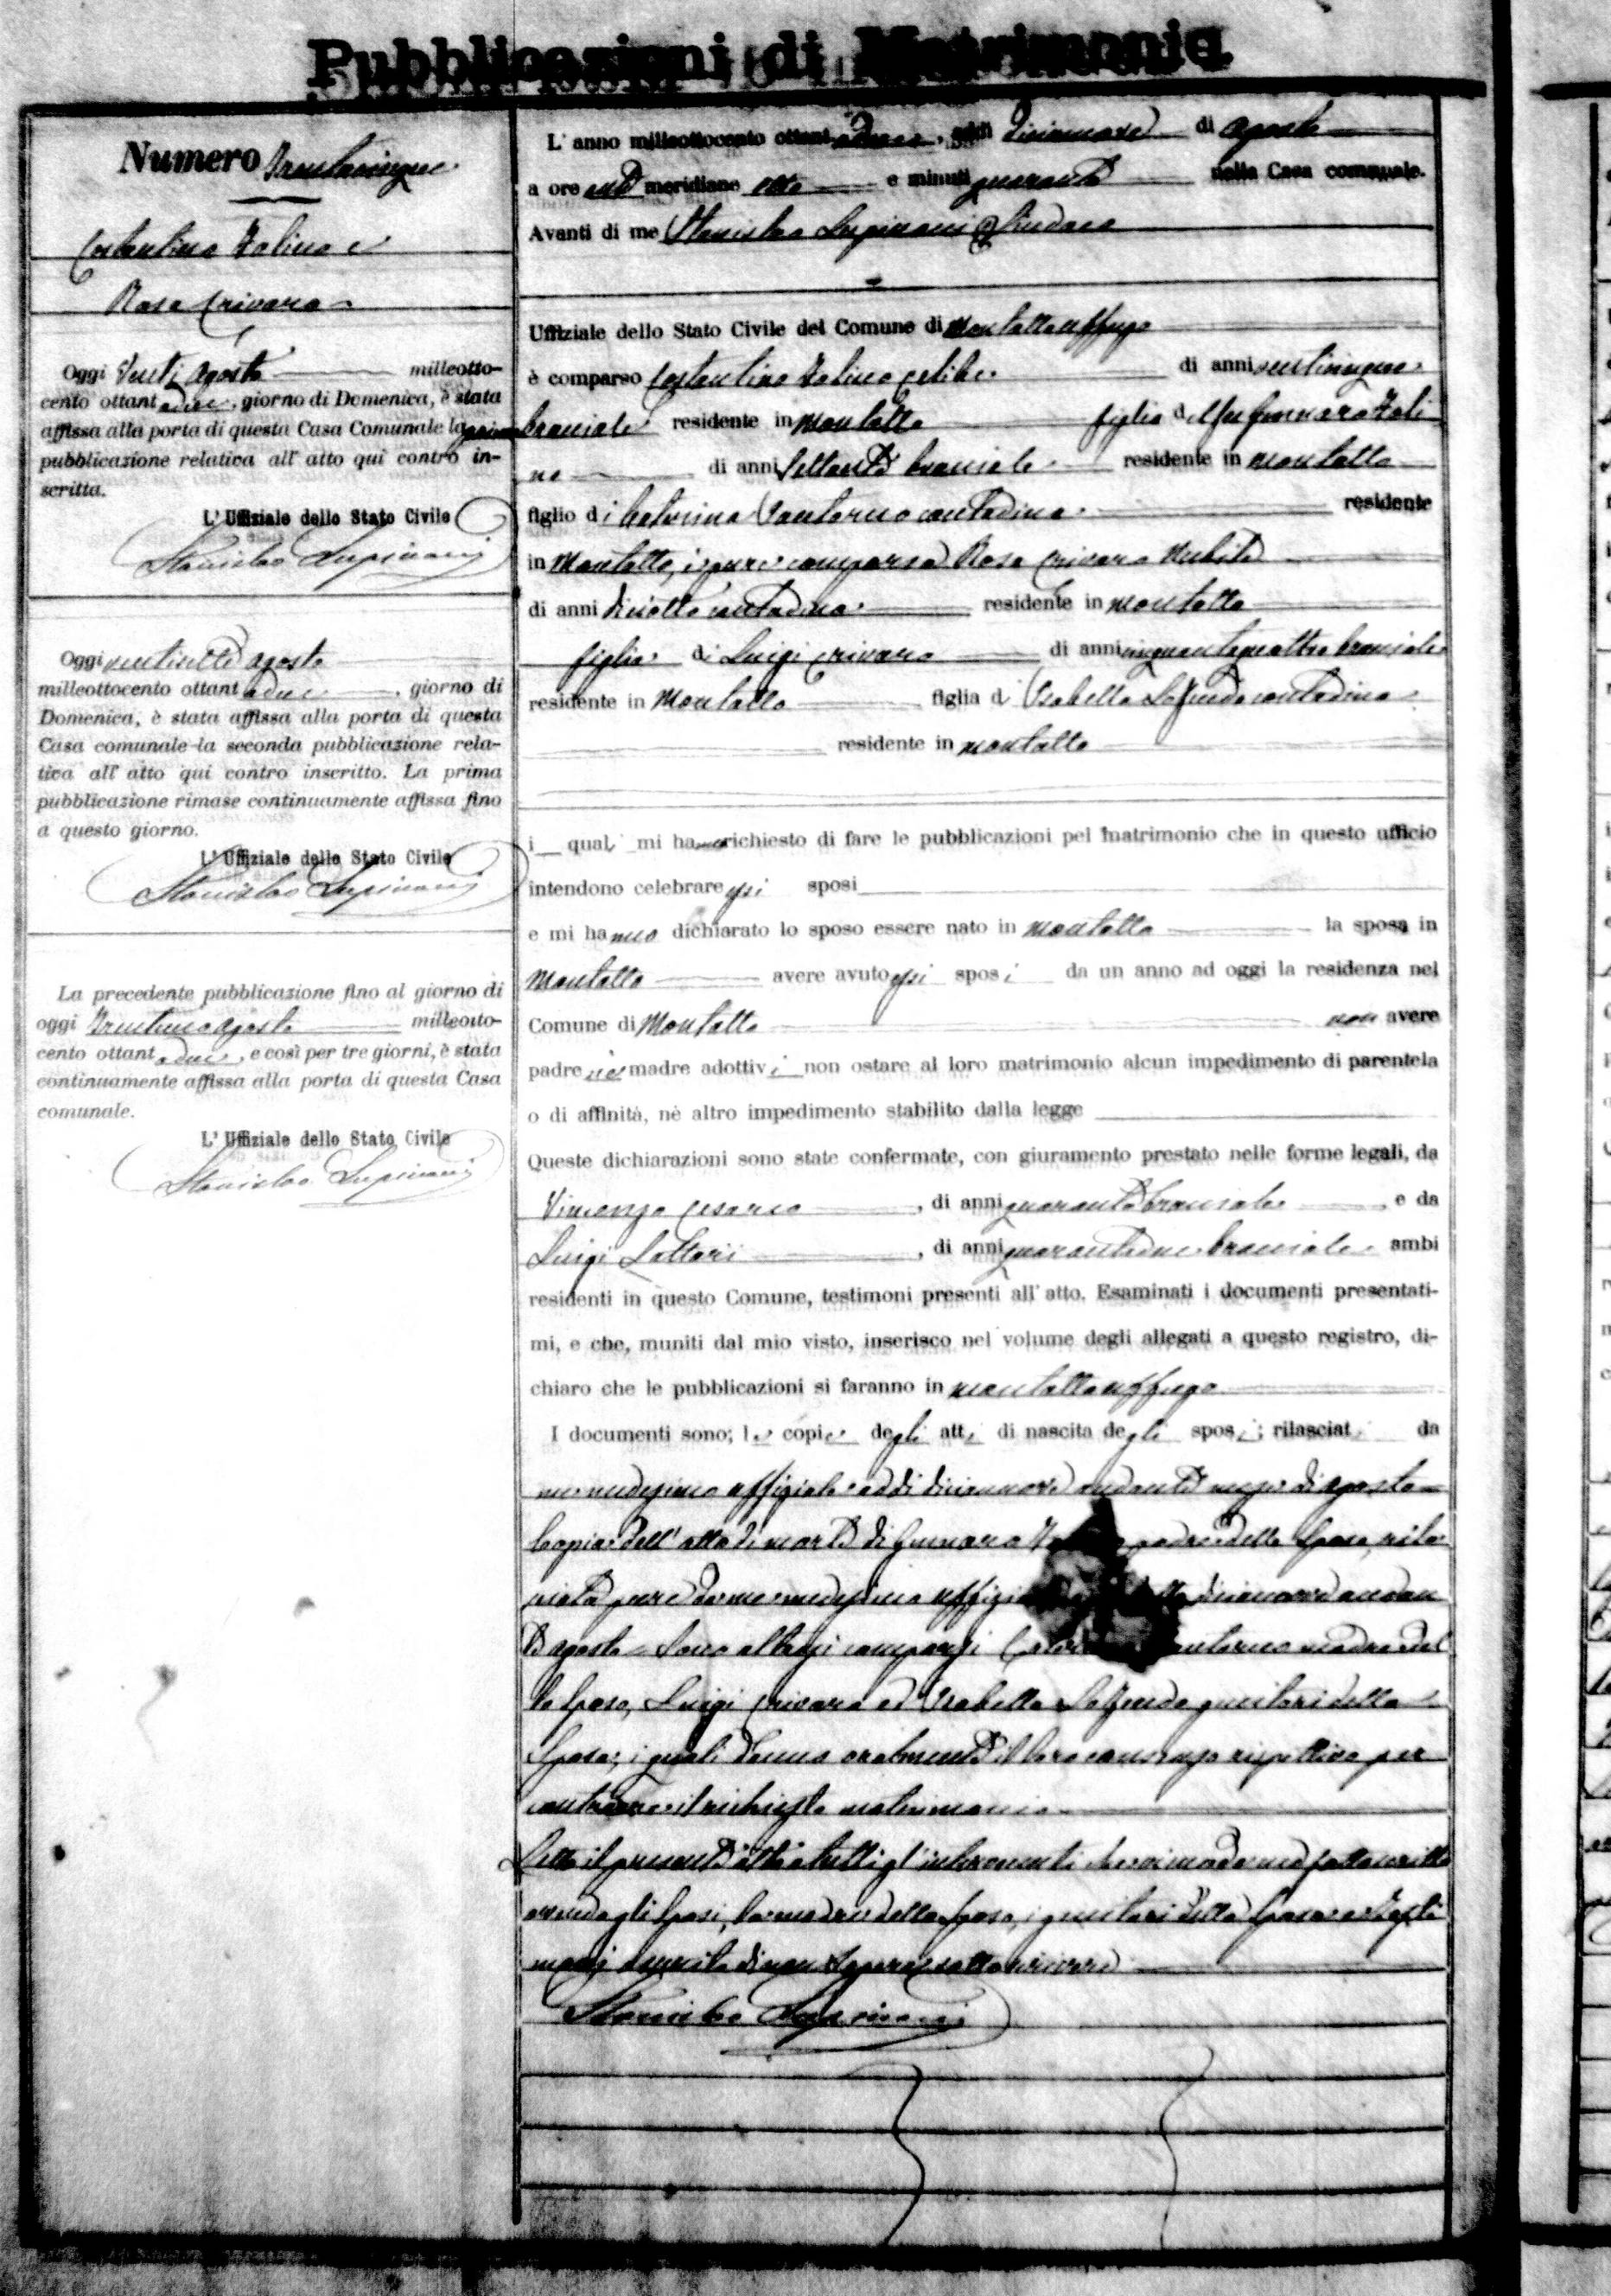 Pubblicazioni di Matrimonio
Numero Trentacinque
Costantino Zolino e
Rosa Crivaro
Oggi Venti agosto milleotto-
cento ottantadue, giorno di Domenica, è stata
affissa alla porta di questa Casa Comunale la prima
pubblicazione relativa all'atto qui contro in-
scritta.
L'Uffiziale dello Stato Civile
Stanislao Lupinacci
Oggi ventisette agosto
milleottocento ottantadue, giorno di
Domenica, è stata affissa alla porta di questa
Casa comunale la seconda pubblicazione rela-
tiva all'atto qui contro inscritto. La prima
pubblicazione rimase continuamente affissa fino
a questo giorno.
L'Uffiziale dello Stato Civile
Stanislao Lupinacci
La precedente pubblicazione fino al giorno di
oggi Trentuno agosto milleotto-
cento ottantadue, e così per tre giorni, è stata
continuamente affissa alla porta di questa Casa
comunale.
L'Uffiziale dello Stato Civile
Stanislao Lupinacci
L'anno milleottocento ottantadue, addì diciannove di agosto
a ore anti meridiane otto e minuti quaranta nella Casa comunale.
Avanti di me Stanislao Lupinacci Sindaco
Uffiziale dello Stato Civile del Comune di Montalto Uffugo
è comparso Costantino Zolino celibe di anni venticinque
bracciale residente in Montalto figlio del fu Gennaro Zoli
no di anni settanta bracciale residente in Montalto
figlio di Caterina Santorno contadina residente
in Montalto, è pure comparsa Rosa Crivaro nubile
di anni diciotto contadina residente in Montalto
figlia di Luigi Crivaro di anni cinquantaquattro bracciale
residente in Montalto figlia d'Isabella contadina
residente in Montalto
i quali mi hanno richiesto di fare le pubblicazioni pel matrimonio che in questo ufficio
intendono celebrare essi sposi
e mi hanno dichiarato lo sposo essere nato in Montalto la sposa in
Montalto avere avuto essi sposi da un anno ad oggi la residenza nel
Comune di Montalto non avere
padre nè madre adottivi non ostare al loro matrimonio alcun impedimento di parentela
o di affinità, nè altro impedimento stabilito dalla legge
Queste dichiarazioni sono state confermate, con giuramento prestato nelle forme legali, da
Vincenzo Cesario, di anni quaranta bracciale, e da
Luigi Lattari, di anni quarantadue bracciale ambi
residenti in questo Comune, testimoni presenti all'atto. Esaminati i documenti presentati-
mi, e che, muniti dal mio visto, inserisco nel volume degli allegati a questo registro, di-
chiaro che le pubblicazioni si faranno in Montalto Uffugo
I documenti sono; le copie degli atti di nascita degli sposi; rilasciati da
me medesimo uffiziale addì diciannove andante mese di agosto
Copia dell'atto di morte di Gennaro padre dello sposo, rila
sciata pure da me medesimo diciannove andan
te agosto Sono altresì comparsi madre del
lo sposo, Luigi Crivaro ed Isabella genitori della
sposa; i quali danno oralmente il loro consenso rispettivo per
contrarre il richiesto matrimonio
Letto il presente atto a tutti gl'intervenuti
avendo gli sposi, la madre dello sposo, i genitori della sposa e testi
moni asserito di non sapere sottoscrivere
Stanislao Lupinacci